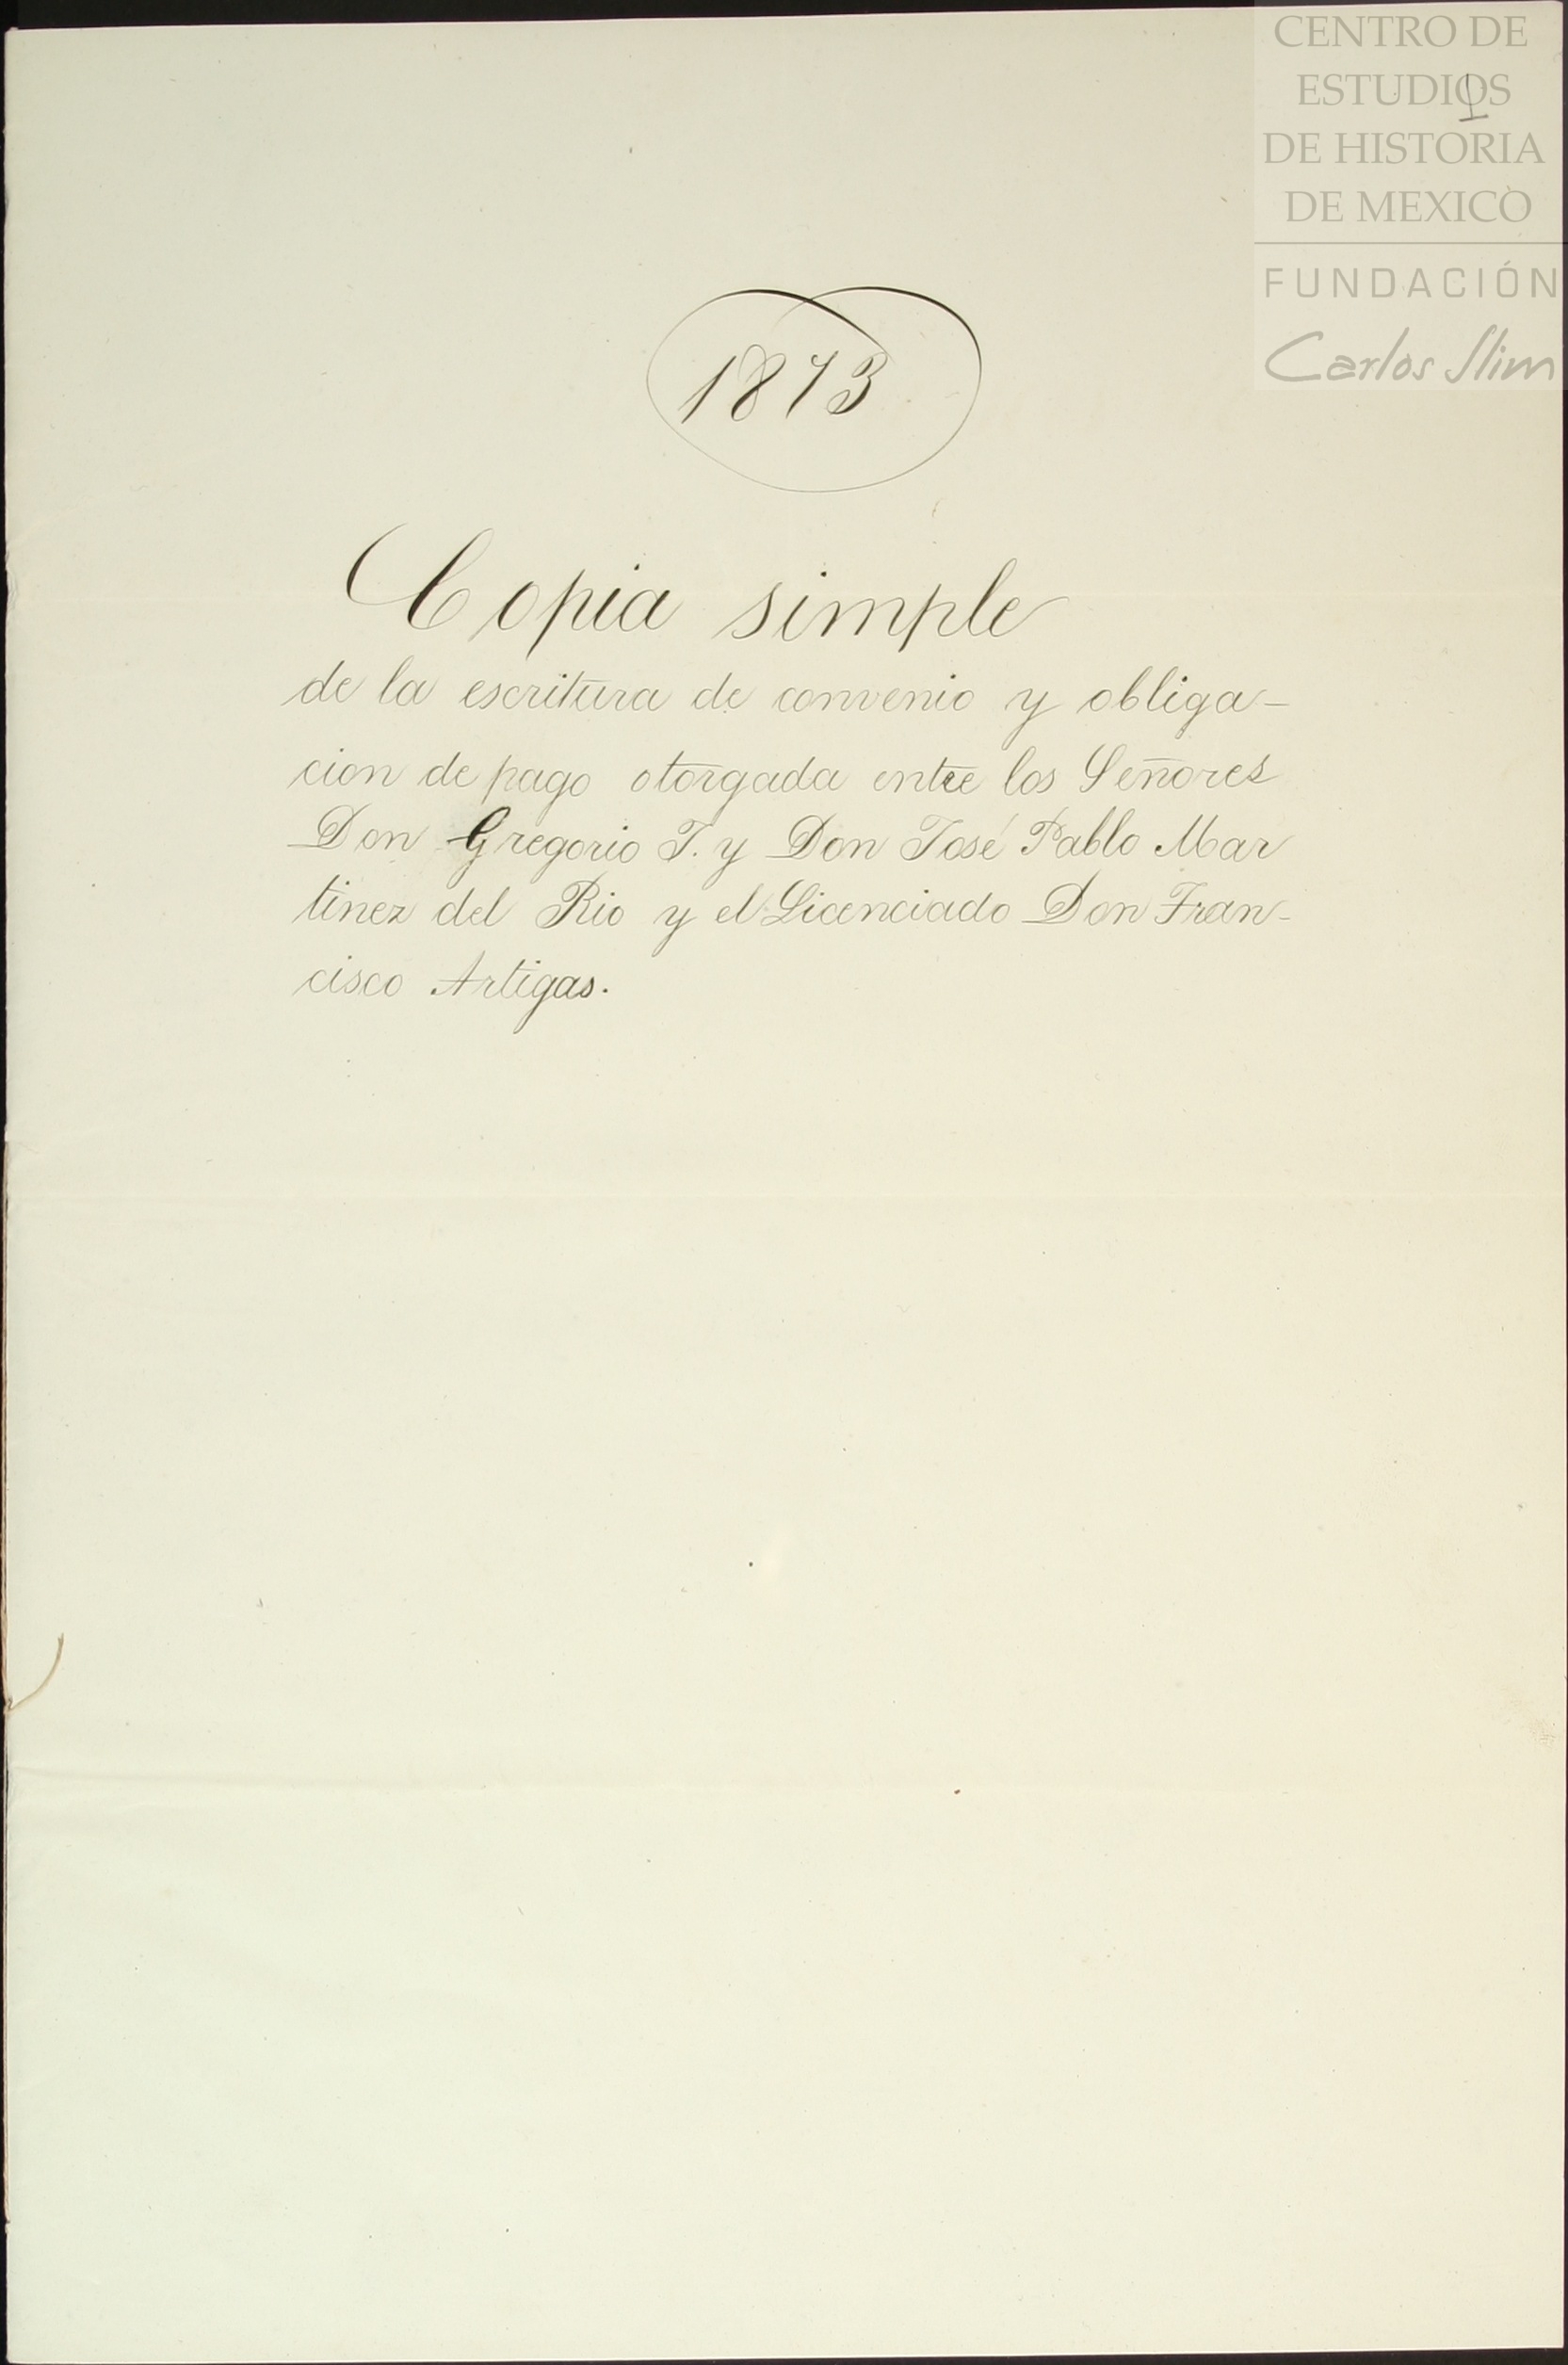 CENTRO DE
ESTUDIOS
DE HISTORIA
DE MEXICO
FUNDACIÓN
Carlos Slim
1
1873
Copia simple
de la escritura de convenio y obliga-
cion de pago otorgada entre los Señores
Don Gregorio J. y Don José Pablo Mar
tinez del Rio y el Licenciado Don Fran-
cisco Artigas.